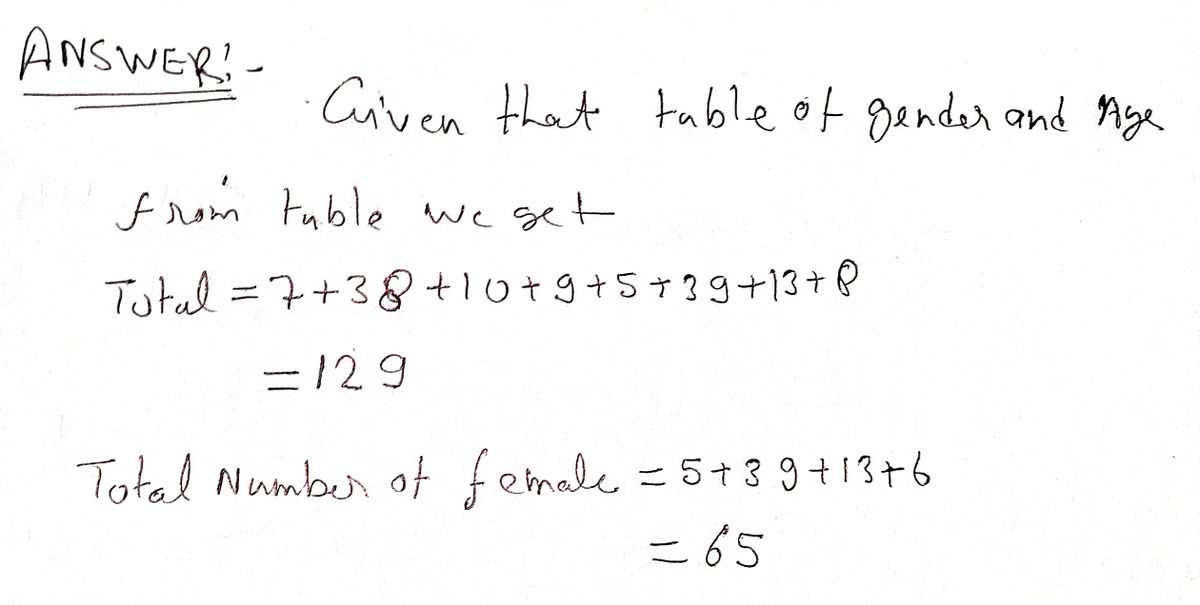 ANSWER:-
Given that table of gender and Age
from table we get
Total = 7+38+10+9+5+39+13+8
=129
Total Number of female = 5+39+13+6
= 65